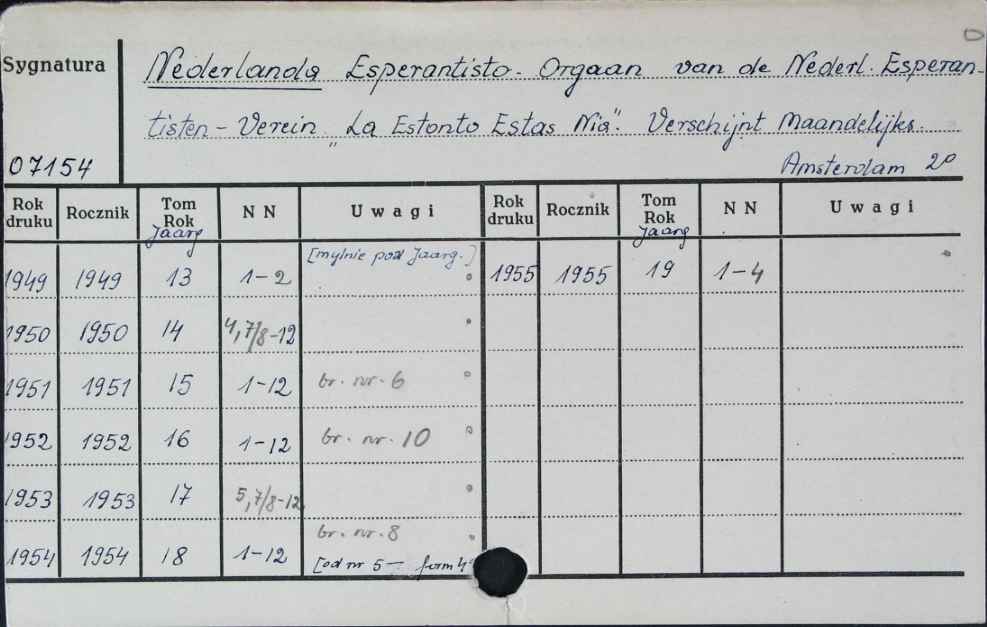 Sygnatura
Nederlanda Esperantisto. Orgaan van de Nederl. Esperan-
tisten – Verein „La Estonto Estas Nia". Verschijnt Maandelijks.
07154
Amsterdam 2º
Rok druku Rocznik Tom Rok Jaarg NN Uwagi Rok druku Rocznik Tom Rok Jaarg NN Uwagi
1949 1949 13 1–2 [mylnie pod Jaarg.] 1955 1955 19 1–4
1950 1950 14 4,7/8–12
1951 1951 15 1–12 br. nr. 6
1952 1952 16 1–12 br. nr. 10
1953 1953 17 5,7/8–12
1954 1954 18 1–12 br. nr. 8
[od nr 5 – form 4º